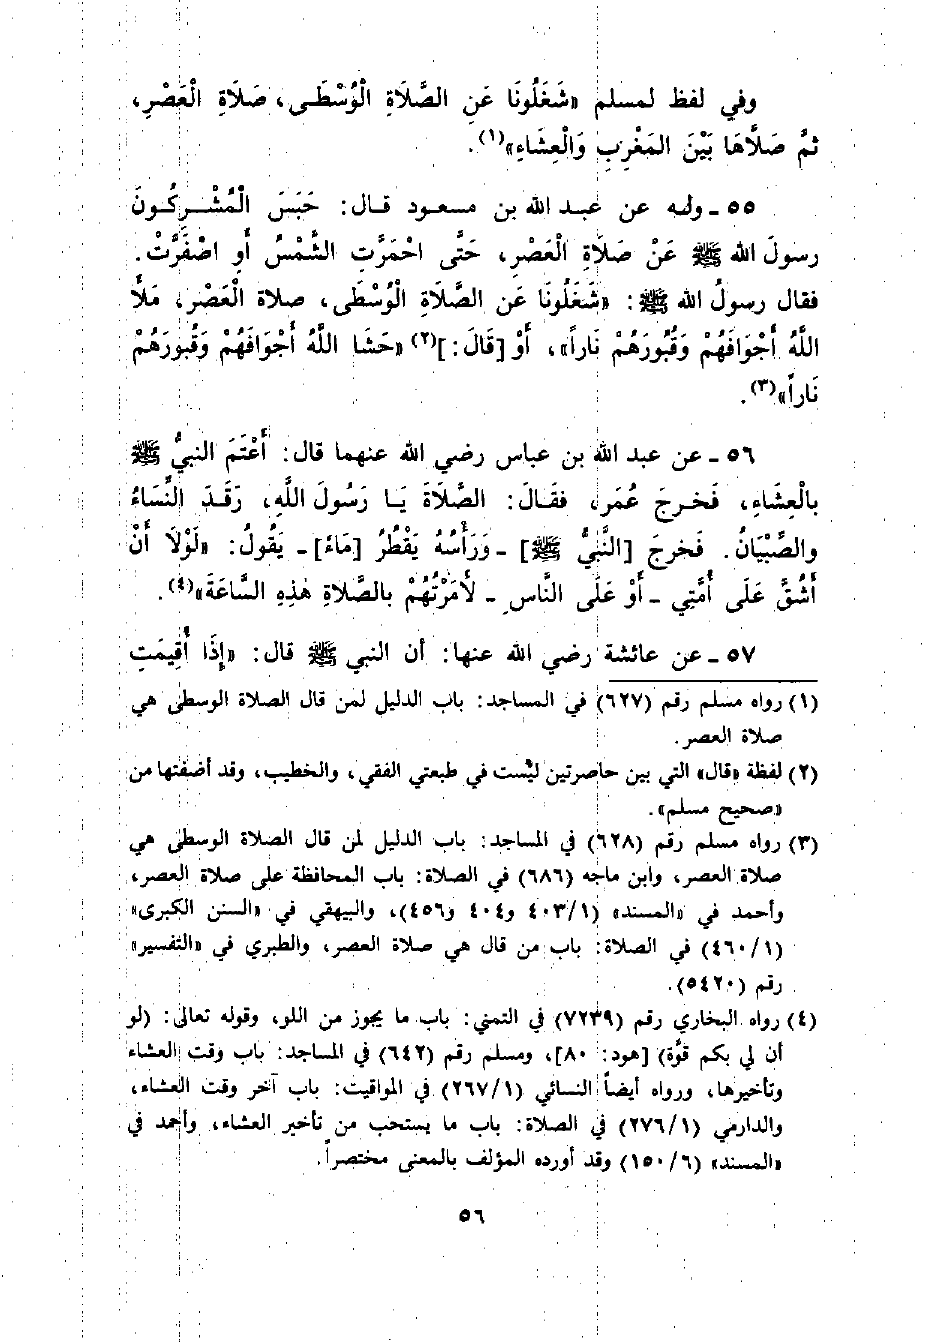 وفي لفظ لمسلم «شَغَلُونَا عَنِ الصَّلَاةِ الْوُسْطَى، صَلَاةِ الْعَصْرِ،
ثمَّ صَلَّاهَا بَيْنَ المَغْرِبِ وَالْعِشَاءِ»(١).
٥٥ ـ وله عن عبد الله بن مسعود قال: حَبَسَ الْمُشْرِكُونَ
رسولَ الله ﷺ عَنْ صَلَاةِ الْعَصْرِ، حَتَّى احْمَرَّتِ الشَّمْسُ أَوِ اصْفَرَّتْ.
فقال رسولُ الله ﷺ: «شَغَلُونَا عَنِ الصَّلَاةِ الْوُسْطَى، صلاة الْعَصْرِ، مَلأَ
اللَّهُ أَجْوَافَهُمْ وَقُبُورَهُمْ نَاراً»، أَوْ [قَالَ:](٢) «حَشَا اللَّهُ أَجْوَافَهُمْ وَقُبورَهُمْ
نَاراً»(٣).
٥٦ ـ عن عبد الله بن عباس رضي الله عنهما قال: أَعْتَمَ النبيُّ ﷺ
بالْعِشَاءِ، فَخرجَ عُمَر، فقَالَ: الصَّلَاةَ يَا رَسُولَ اللَّهِ، رَقَدَ النِّسَاءُ
والصِّبْيَانُ. فَخرجَ [النَّبيُّ ﷺ] ـ وَرَأْسُهُ يَقْطُرُ [مَاءً] ـ يَقُولُ: «لَوْلَا أَنْ
أَشُقَّ عَلَى أُمَّتِي ـ أَوْ عَلَى النَّاسِ ـ لأَمَرْتُهُمْ بالصَّلاةِ هٰذِهِ السَّاعَةَ»(٤).
٥٧ ـ عن عائشة رضي الله عنها: أن النبي ﷺ قال: «إِذَا أُقِيمَتِ
(١) رواه مسلم رقم (٦٢٧) في المساجد: باب الدليل لمن قال الصلاة الوسطى هي
صلاة العصر.
(٢) لفظة «قال» التي بين حاصرتين ليْست في طبعتي الفقي، والخطيب، وقد أضفتها من
«صحيح مسلم».
(٣) رواه مسلم رقم (٦٢٨) في المساجد: باب الدليل لمن قال الصلاة الوسطى هي
صلاة العصر، وابن ماجه (٦٨٦) في الصلاة: باب المحافظة على صلاة العصر،
وأحمد في «المسند» (٤٠٣/١ و٤٠٤ و٤٥٦)، والبيهقي في «السنن الكبرى»
(٤٦٠/١) في الصلاة: باب من قال هي صلاة العصر، والطبري في «التفسير»
رقم (٥٤٢٠).
(٤) رواه البخاري رقم (٧٢٣٩) في التمني: باب ما يجوز من اللو، وقوله تعالى: (لو
أن لي بكم قوَّة) [هود: ٨٠]، ومسلم رقم (٦٤٢) في المساجد: باب وقت العشاء
وتأخيرها، ورواه أيضاً النسائي (٢٦٧/١) في المواقيت: باب آخر وقت العشاء،
والدارمي (٢٧٦/١) في الصلاة: باب ما يستحب من تأخير العشاء، وأحمد في
«المسند» (١٥٠/٦) وقد أورده المؤلف بالمعنى مختصراً.
٥٦